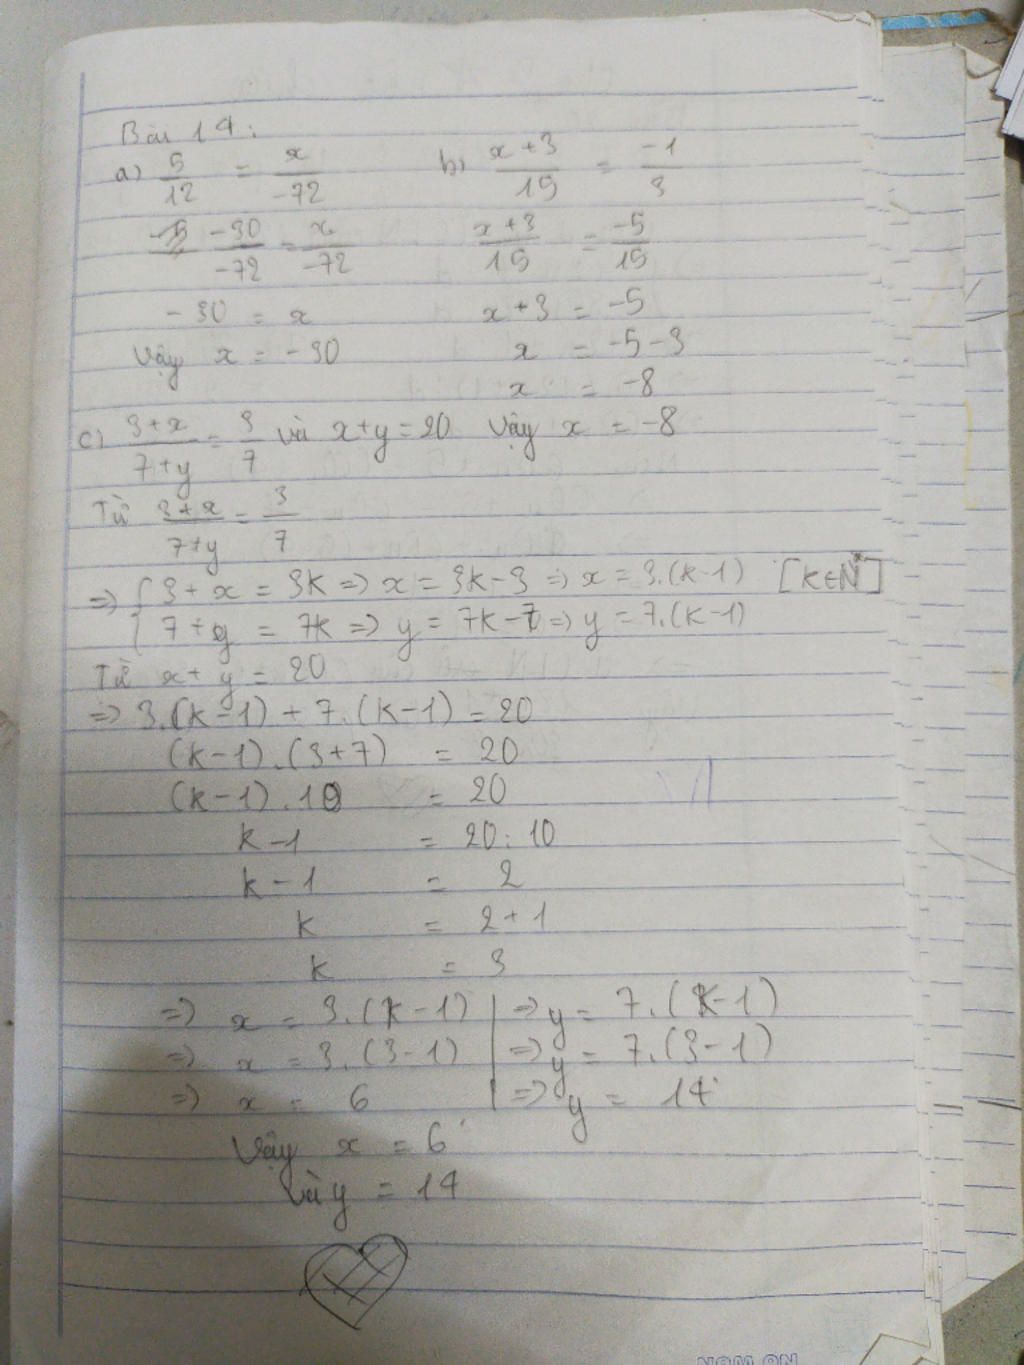 Bài 14:
a) 5/12 = x/-72
-30/-72 = x/-72
-30 = x
Vậy x = -30
b) x+3/15 = -1/3
x+3/15 = -5/15
x+3 = -5
x = -5-3
x = -8
Vậy x = -8
c) 3+x/7+y = 3/7 và x+y=20
Từ 3+x/7+y = 3/7
=> { 3+x = 3k => x = 3k-3 => x = 3.(k-1) [k∈N*]
7+y = 7k => y = 7k-7 => y = 7.(k-1)
Từ x+y = 20
=> 3.(k-1) + 7.(k-1) = 20
(k-1).(3+7) = 20
(k-1).10 = 20
k-1 = 20:10
k-1 = 2
k = 2+1
k = 3
=> x = 3.(k-1) | => y = 7.(k-1)
=> x = 3.(3-1) | => y = 7.(3-1)
=> x = 6 | => y = 14
Vậy x = 6
và y = 14